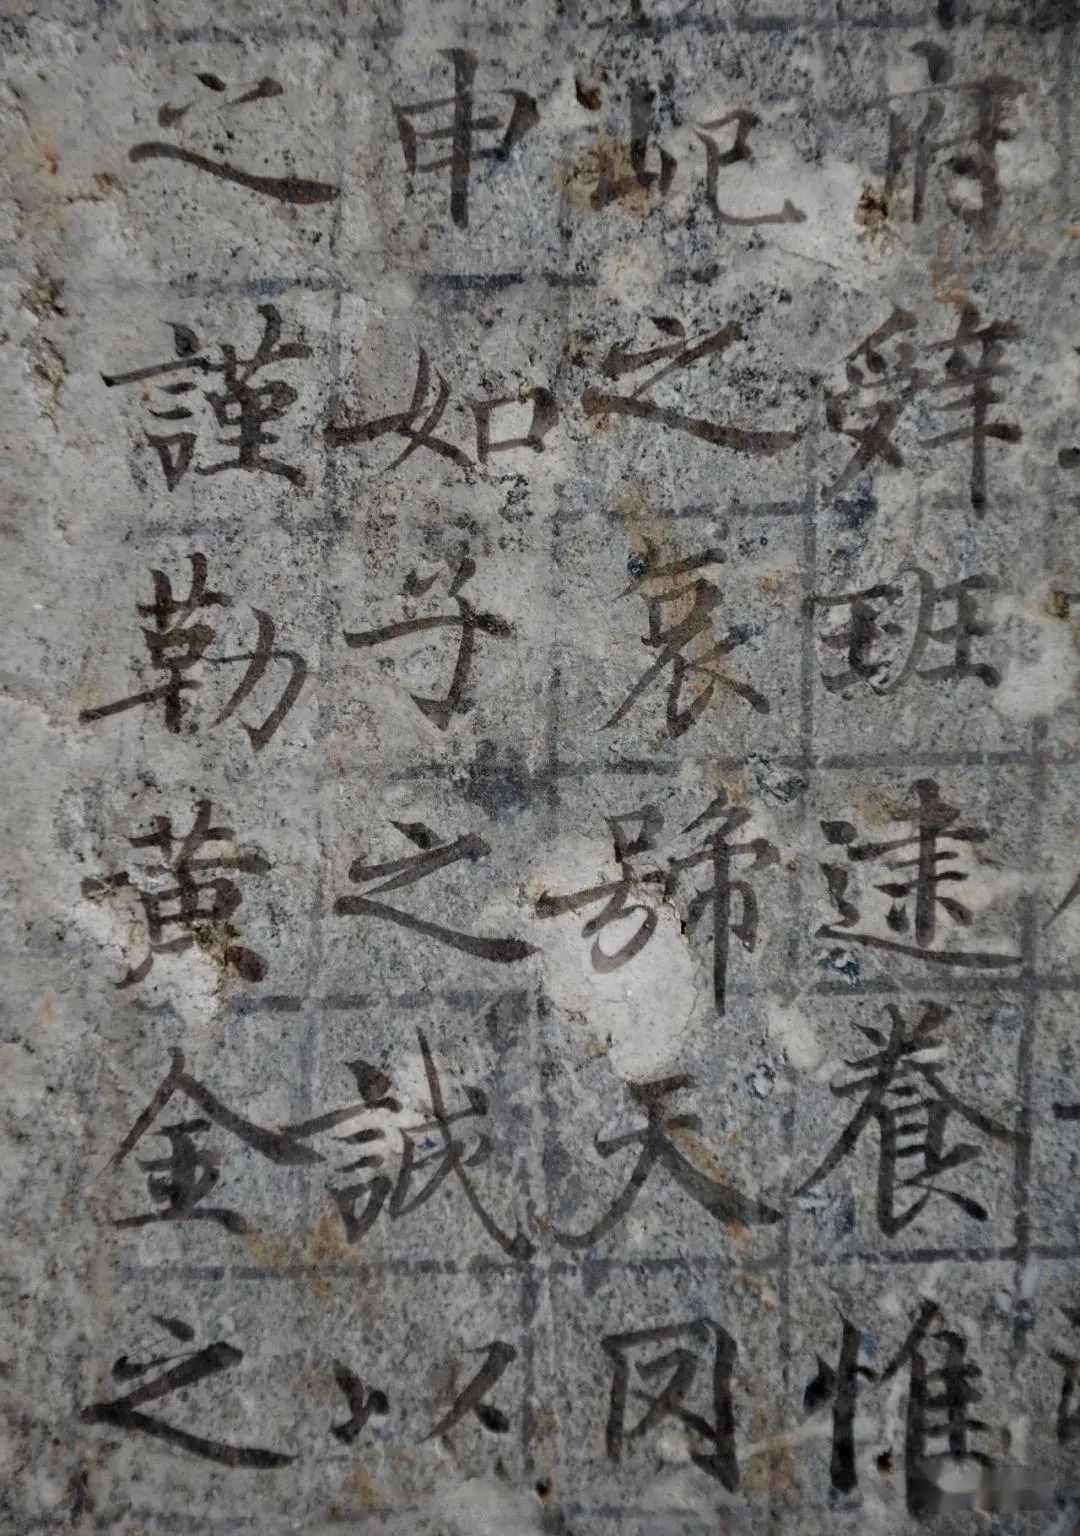 府辤班逮養惟
屺之哀號天罔
申如子之誠以
之謹勒黄金之